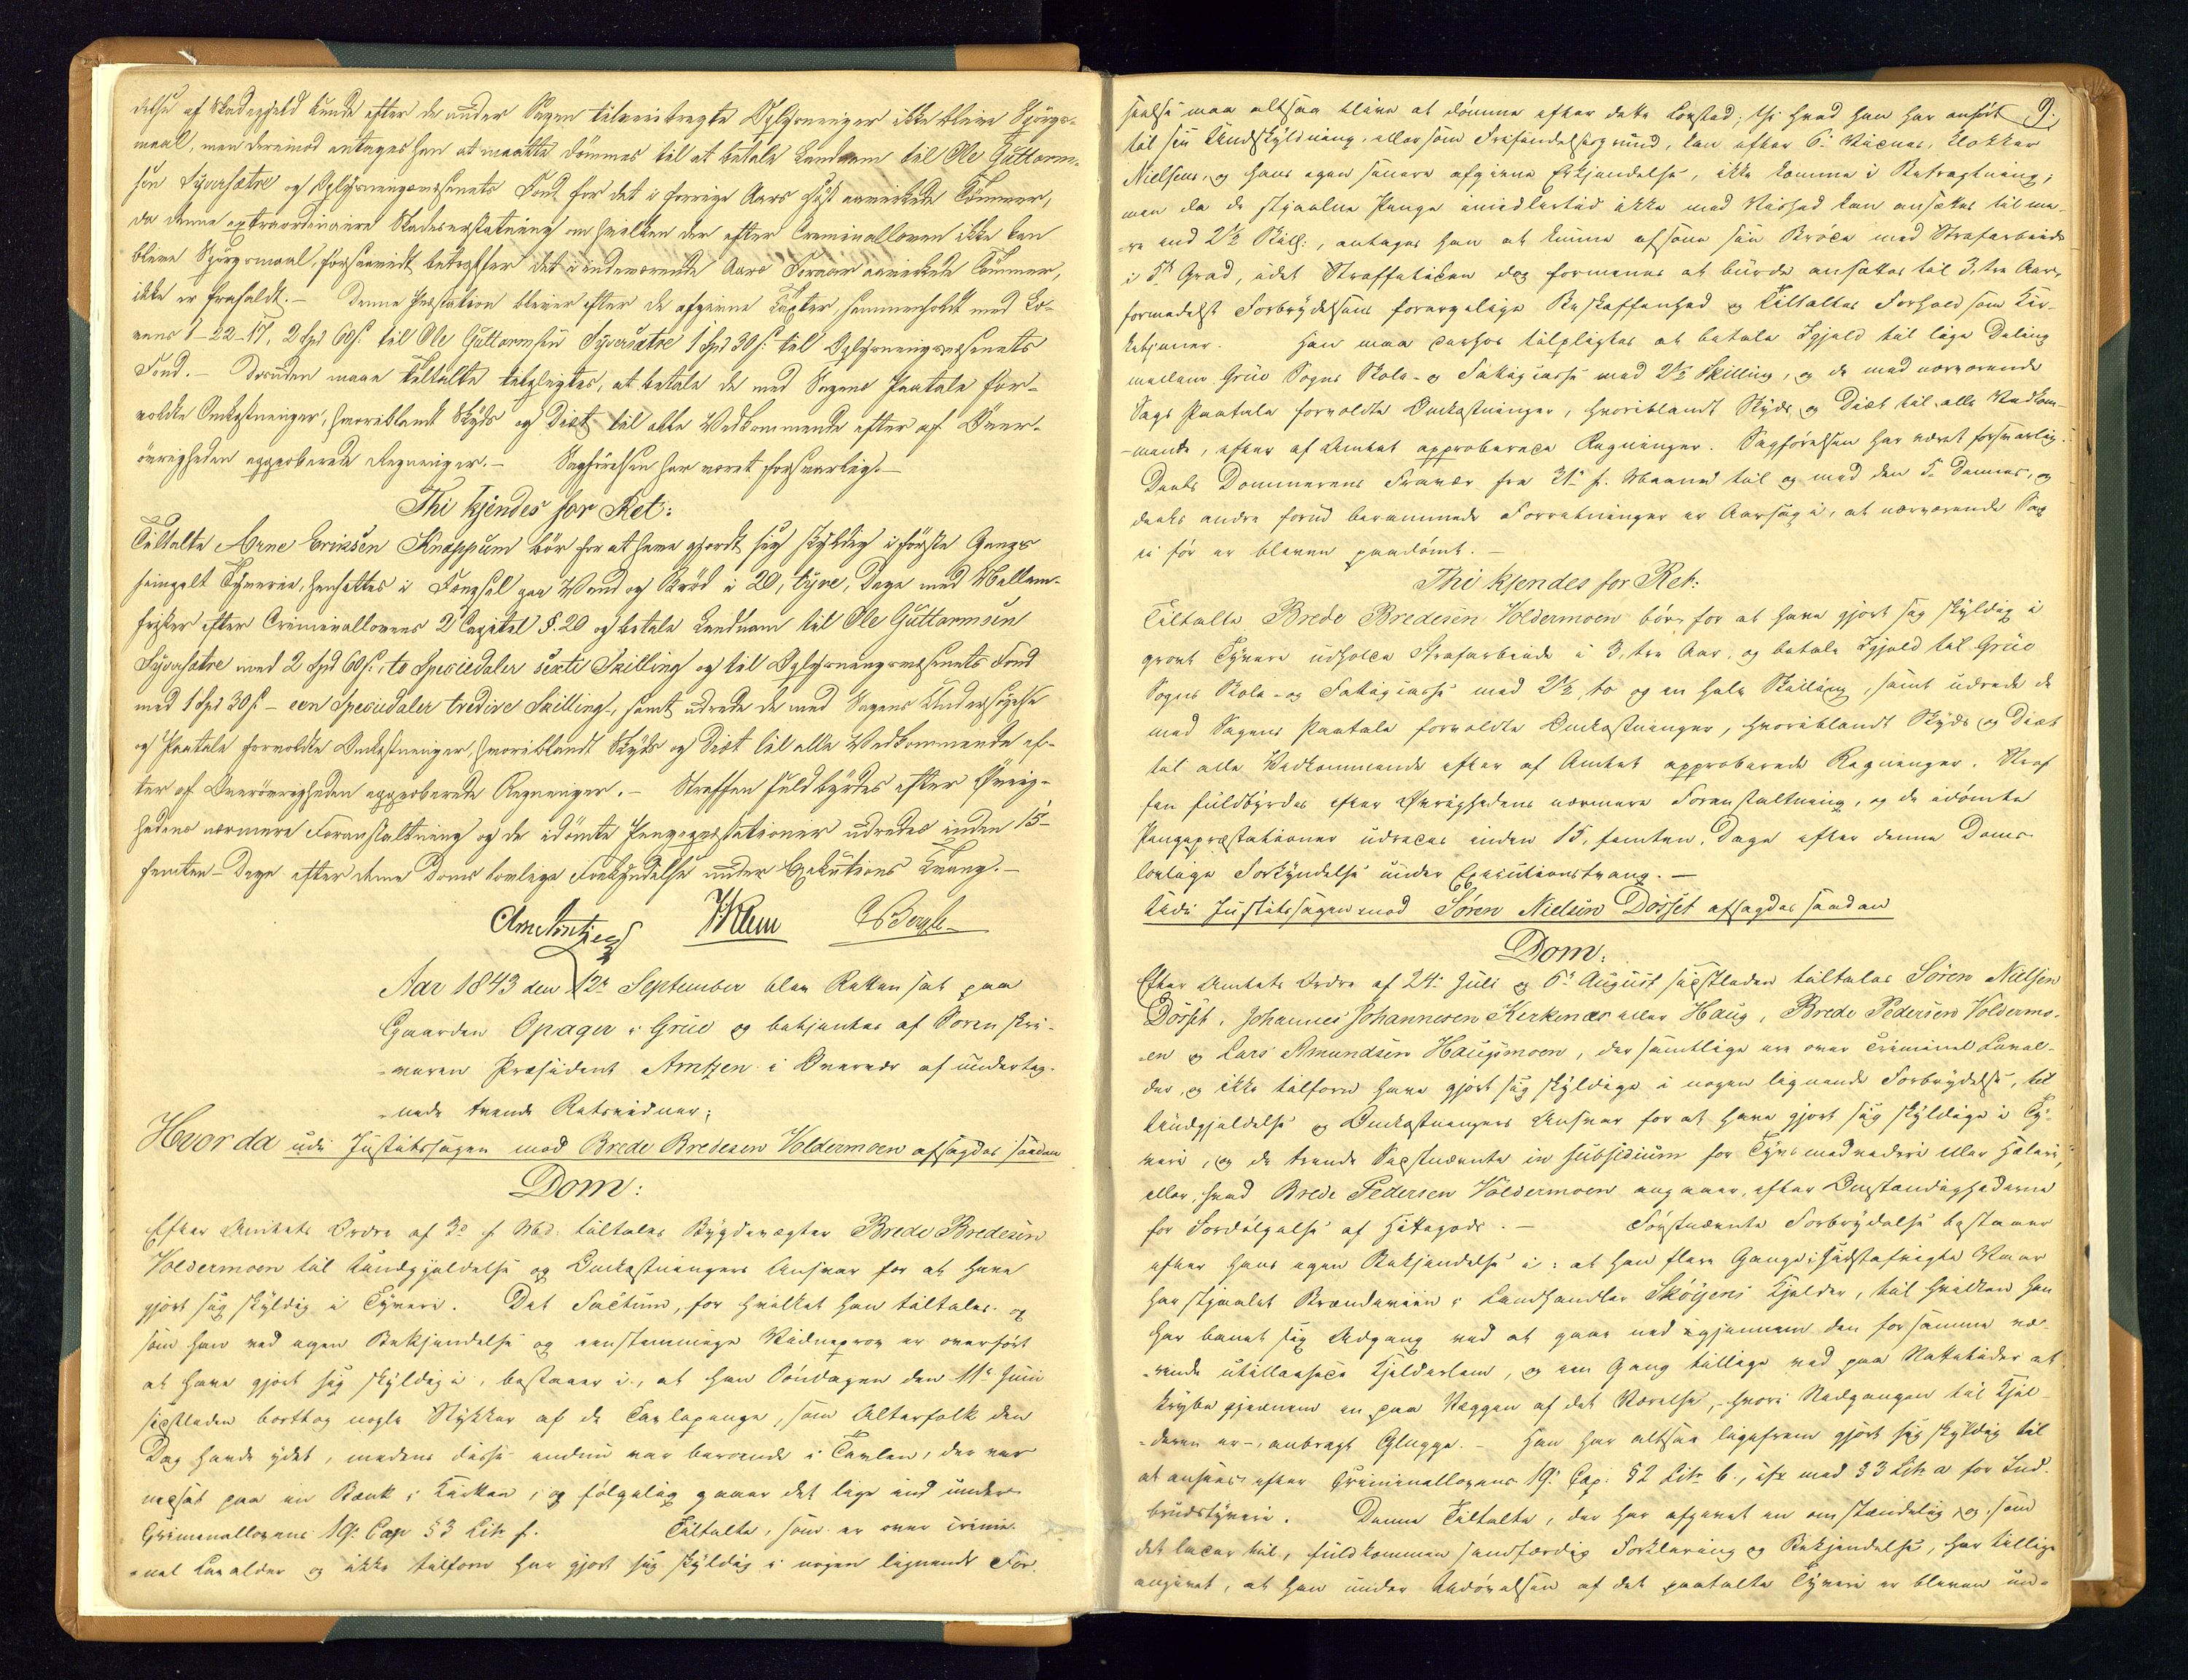 delse af Skadegjeld kunde efter de under Sagen tilveiebragte Oplysninger ikke blive Spörgs-
maal, men derimod antages han at maatte dömmes til at betale Landnam til Ole Guttorm-
sen Syversætre og Oplysningsvæsenets Fond for det i forrige Aars Höst aavirkede Tömmer,
da denne extraordinaire Skadeserstatning om hvilken der efter Criminalloven ikke kan
blive Spörgsmaal, forsaavidt betræffer det i indeværende Aars Foraar aavirkede Tömmer,
ikke er frafaldt. – Denne Præstation bliver efter de afgivne Taxter, sammenholdt med Lo-
vens 1-22-17, 2 Spd 60 s. til Ole Guttormsen Syversætre 1 Spd 30 s. til Oplysningsvæsenets
Fond. – Desuden maae Tiltalte tilpligtes, at betale de med Sagens Paatale for-
voldte Omkostninger, hvoriblandt Skyds og Diæt til alle Vedkommende efter af Over-
övrigheden approberede Regninger. – Sagförelsen har været forsvarlig. –
Thi kjendes for Ret:
Tiltalte Arne Eriksen Knappum bör for at have gjordt sig skyldig i förste Gangs
simpelt Tyverie, hensættes i Fængsel paa Vand og Bröd i 20, tyve, Dage med Mellem-
frister efter Criminallovens 2 Capitel §. 20 og betale Landnam til Ole Guttormsen
Syversætre med 2 Spd 60 s. to Speciedaler sexti Skilling og til Oplysningsvæsenets Fond
med 1 Spd 30 s – een Speciedaler tredive Skilling –, samt udrede de med Sagens Undersögelse
og Paatale forvoldte Omkostninger, hvoriblandt Skyds og Diæt til alle Vedkommende ef-
ter af Overövrigheden approberede Regninger. – Straffen fuldbyrdes efter Övrig-
hedens nærmere Foranstaltning og de idömte Pengepræstationer udredes inden 15 –
femten – Dage efter denne Doms lovlige Forkyndelse under Executions Tvang. –
Arntzen
Aar 1843 den 12te September blev Retten sat paa
Gaarden Opager i Grue og betjentes af Sorenskri-
veren Præsident Arntzen i Overvær af underteg-
nede tvende Retsvidner;
Hvorda udi Justitssagen mod Brede Bredesen Voldermoen afsagdes saadan
Dom:
Efter Amtets Ordre af 3de f. Md. tiltales Bygdevægter Brede Bredesen
Voldermoen til Undgjeldelse og Omkostningers Ansvar for at have
gjort sig skyldig i Tyveri. Det Factum, for hvilket han tiltales og
som han ved egen Bekjendelse og eenstemmige Vidneprov er overfört
at have gjort sig skyldig i, bestaaer i, at han Söndagen den 11te Juni
sidstleden borttog nogle Stykker af de Tavlepenge, som Alterfolk den
Dag havde ydet, medens disse endnu var beroende i Tavlen, der var
nedsat paa en Bænk i Kirken, og fölgelig gaaer det lige ind under
Criminallovens 19de Cap § 3 Litr f. Tiltalte, som er over crimi-
nel Lavalder og ikke tilforn har gjort sig skyldig i nogen lignende For-
9.
seelse maa altsaa blive at dömme efter dette Lovsted; thi hvad han har anfört
til sin Undskyldning, eller som Frifindelsesgrund, kan efter 6te Vidnes, Klokker
Nielsens, og hans egen senere afgivne Erkjendelse, ikke komme i Betragtning;
men da de stjaalne Penge imidlertid ikke med Vished kan ansættes til me-
re end 2½ Skill:, antages han at kunne afsone sin Bröde med Strafarbeide
i 5te Grad, idet Straffetiden dog formenes at burde ansættes til 3, tre Aar,
formedelst Forbrydelsens forargelige Beskaffenhed og Tiltaltes Forhold som Kir-
ketjener. Han maa derhos tilpligtes at betale Igjeld til lige Deling
mellem Grue Sogns Skole- og Fattigcasse med 2½ Skilling, og de med nærværende
Sags Paatale forvoldte Omkostninger, hvoriblandt Skyds og Diæt til alle Vedkom-
mende, efter af Amtet approberede Regninger. Sagförelsen har været forsvarlig.
Deels Dommerens Fravær fra 31te f. Maaned til og med den 5te Dennes, og
deels andre forud berammede Forretninger er Aarsag i, at nærværende Sag
ei för er bleven paadömt. –
Thi kjendes for Ret:
Tiltalte Brede Bredesen Voldermoen bör for at have gjort sig skyldig i
grovt Tyveri udholde Strafarbeide i 3, tre Aar, og betale Igjeld til Grue
Sogns Skole- og Fattigcasse med 2½, to og en halv Skilling, samt udrede de
med Sagens Paatale forvoldte Omkostninger, hvoriblandt Skyds og Diæt
til alle Vedkommende efter af Amtet approberede Regninger. Straf
fen fuldbyrdes efter Övrighedens nærmere Foranstaltning, og de idömte
Pengepræstationer udredes inden 15, femten, Dage efter denne Doms
lovlige Forkyndelse under Executionstvang. –
Udi Justitssagen mod Sören Nielsen Dösset afsagdes saadan
Dom:
Efter Amtets Ordre af 24de Juli og 6te August sidstleden tiltales Sören Nielsen
Dösset, Johannes Johannesen Kirkenær eller Haug, Brede Pedersen Voldermo-
en og Lars Amundsen Haugsmoen, der samtlige ere over criminel Laval-
der, og ikke tilforn have gjort sig skyldige i nogen lignende Forbrydelse, til
Undgjeldelse og Omkostningers Ansvar for at have gjort sig skyldige i Ty-
veri, og de tvende Sidstnævnte in subsidium for Tyvsmedvideri eller Hæleri,
eller, hvad Brede Pedersen Voldermoen angaaer, efter Omstændighederne
for Fordölgelse af Hittegods. – Förstnævnte Forbrydelse bestaaer
efter hans egen Bekjendelse i: at han flere Gange i sidstafvigte Vaar
har stjaalet Brændeviin i Landhandler Sköijens Kjelder, til hvilken han
har banet sig Adgang ved at gaae ned igjennem den for samme væ-
rende utillaasede Kjelderlem, og een Gang tillige ved paa Nattetider at
krybe gjennem en paa Væggen af det Værelse, – hvori Nedgangen til Kjel-
deren er –, anbragt Glugge. – Han har altsaa ligefrem gjort sig skyldig til
at ansees efter Criminallovens 19de Cap: § 2 Litr b., ifr med § 3 Litr a for Ind-
brudstyveri. Denne Tiltalte, der har afgivet en omstændelig og, som
det lader til, fuldkommen sandfærdig Forklaring og Bekjendelse, har tillige
angivet, at han under Udövelsen af det paatalte Tyveri er bleven un-